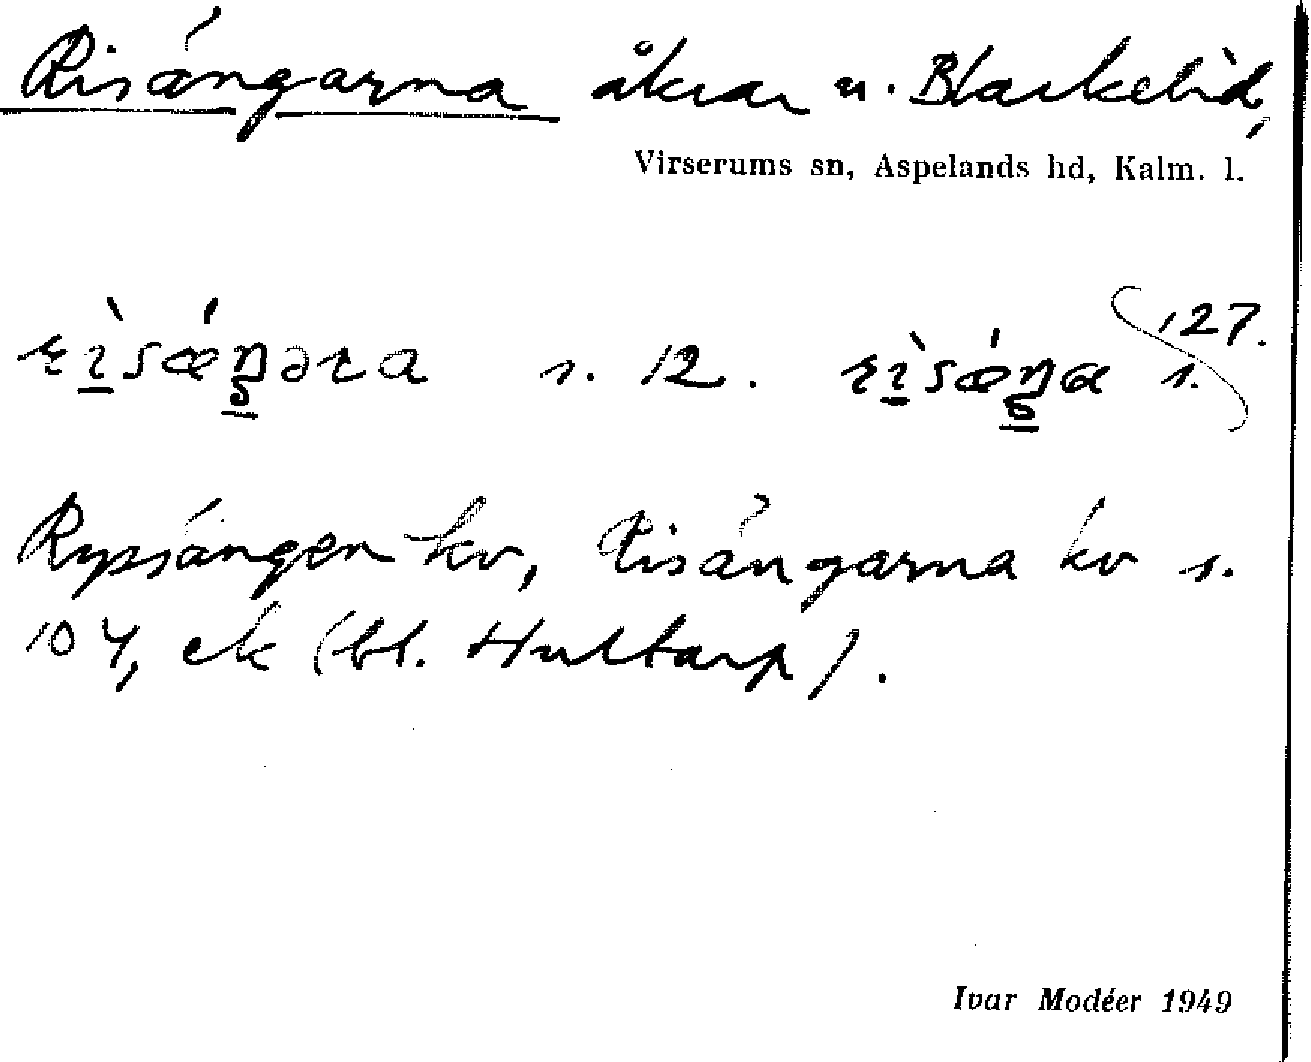 Risängarna åkrar u. Blackelid,
Virserums sn, Aspelands hd, Kalm. l.
s. 12. s. 127.
Rypsängen kv, Risängarna kv s.
104, ek (bl. Hultarp).
Ivar Modéer 1949